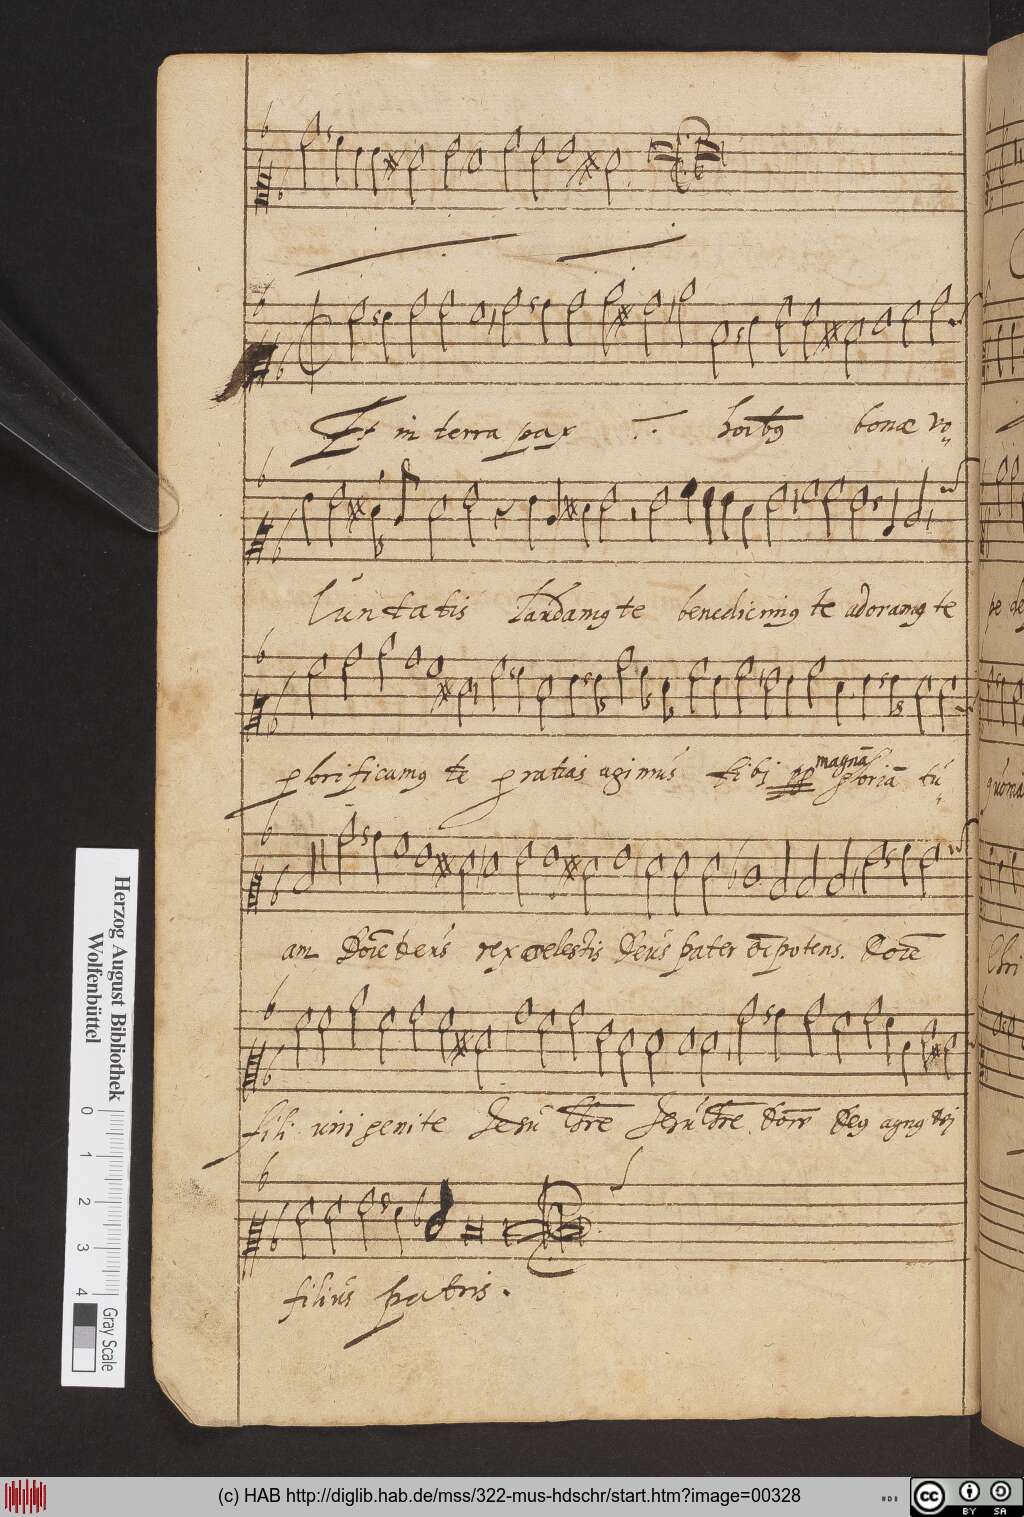 Et in terra pax hoibꝰ bonæ vo
luntatis laudamꝰ te benedicimꝰ te adoramꝰ te
glorificamꝰ te gratias agimús tibj pp magnā gloriā tú
am Doīe deús rex cœlestis deús pater oīpotens. Doīe
fili unigenite Jesú Chre Jesú Chre Doīe Deꝰ agnꝰ dej
filiús patris.
Herzog August Bibliothek
Wolfenbüttel
0 1 2 3 4
Gray Scale
(c) HAB http://diglib.hab.de/mss/322-mus-hdschr/start.htm?image=00328
cc BY SA